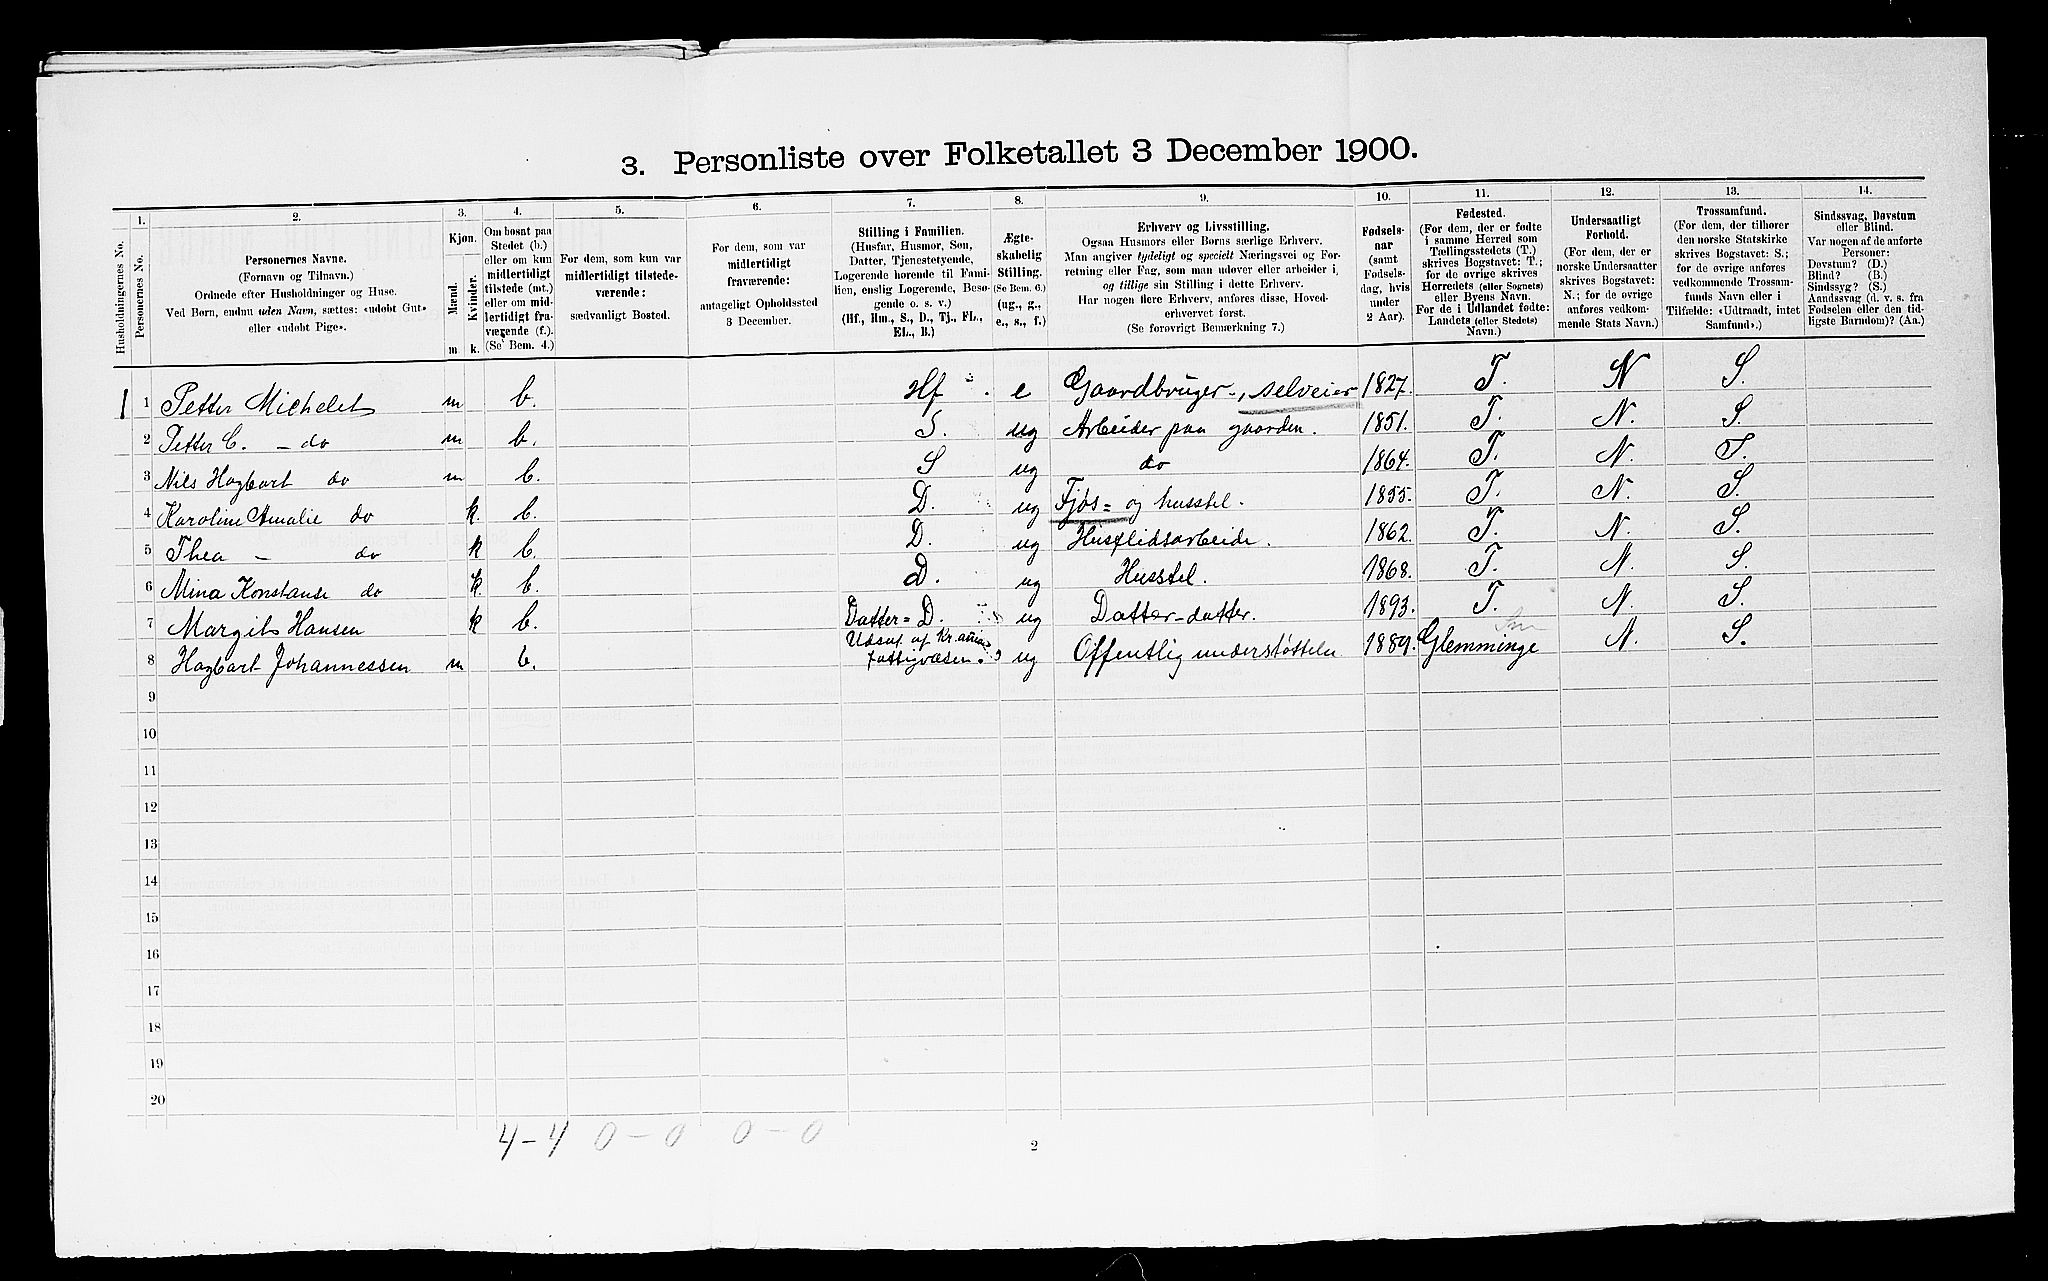 3. Personliste over Folketallet 3 December 1900.
Husholdningernes No.
1. Personernes No.
2. Personernes Navne. (Fornavn og Tilnavn.) Ordnede efter Husholdninger og Huse. Ved Børn, endnu uden Navn, sættes: «udøbt Gut» eller «udøbt Pige».
3. Kjøn. Mænd. m Kvinder. k.
4. Om bosat paa Stedet (b.) eller om kun midlertidigt tilstede (mt.) eller om midlertidigt fraværende (f.). (Se Bem. 4.)
5. For dem, som kun var midlertidigt tilstedeværende: sædvanligt Bosted.
6. For dem, som var midlertidigt fraværende: antageligt Opholdssted 3 December.
7. Stilling i Familien. (Husfar, Husmor, Søn, Datter, Tjenestetyende, Logerende hørende til Familien, enslig Logerende, Besøgende o. s. v.) (Hf., Hm., S., D., Tj., FL., EL., B.)
8. Ægteskabelig Stilling. (Se Bem. 6.) (ug., g., e., s., f.)
9. Erhverv og Livsstilling. Ogsaa Husmors eller Børns særlige Erhverv. Man angiver tydeligt og specielt Næringsvei og Forretning eller Fag, som man udøver eller arbeider i, og tillige sin Stilling i dette Erhverv. Har nogen flere Erhverv, anføres disse, Hovederhvervet først. (Se forøvrigt Bemærkning 7.)
10. Fødselsaar (samt Fødselsdag, hvis under 2 Aar).
11. Fødested. (For dem, der er fødte i samme Herred som Tællingsstedets (T.) skrives Bogstavet: T.; for de øvrige skrives Herredets (eller Sognets) eller Byens Navn. For de i Udlandet fødte: Landets (eller Stedets) Navn.)
12. Undersaatligt Forhold. (For dem, der er norske Undersaatter skrives Bogstavet: N.; for de øvrige anføres vedkommende Stats Navn.)
13. Trossamfund. (For dem, der tilhører den norske Statskirke skrives Bogstavet: S.; for de øvrige anføres vedkommende Trossamfunds Navn eller i Tilfælde: «Udtraadt, intet Samfund».)
14. Sindssvag, Døvstum eller Blind. Var nogen af de anførte Personer: Døvstum? (D.) Blind? (B.) Sindssyg? (S.) Aandssvag (d. v. s. fra Fødselen eller den tidligste Barndom)? (Aa.)
1 1 Petter Michelet m b. Hf e Gaardbruger, selveier 1827. T. N S.
2 Petter C. - do m b. S. ug Arbeider paa gaarden. 1851. T. N. S.
3 Nils Hagbart do m b. S ug do 1864. T. N. S.
4 Karoline Amalie do k. b. D. ug Fjøs= og husstel. 1855. T. N. S.
5 Thea - do k b. D. ug Husflidsarbeide. 1862. T. N. S.
6 Mina Konstanse do k. b. D. ug Husstel. 1868. T. N. S.
7 Margit Hansen k b. Datter=D. ug Datter-datter. 1893. T. N. S.
8 Hagbart Johannessen m b. Udsat af Kr.ania fattigvæsen. ug Offentlig understøttelse 1889. Glemminge N. S.
9
10
11
12
13
14
15
16
17
18
19
20
4-4 0-0 0-0
2